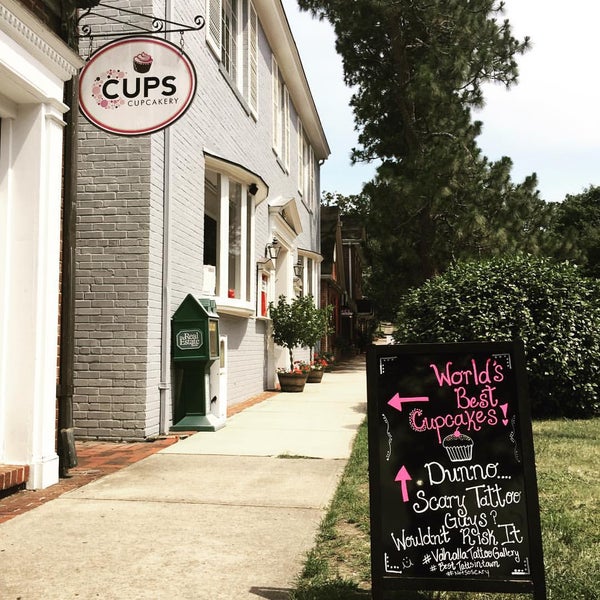 CUPS
CUPCAKERY
Real Estate
World's
Best
Cupcakes!
Dunno....
Scary Tattoo
Guys?
Wouldn't Risk It
#ValhallaTattooGallery
#BestTattsintown
#Notsoscary